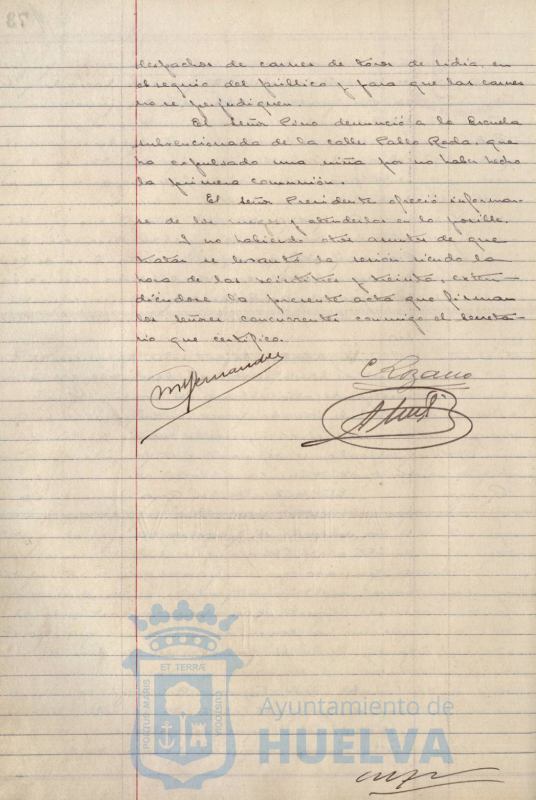 despachos de carnes de toros de lidia, en
obsequio del público y para que las carnes
no se perjudiquen.
El Señor Pino denunció a la Escuela
subvencionada de la calle Pablo Rada, que
ha expulsado una niña por no haber hecho
la primera comunión.
El Señor Presidente ofreció informar-
se de los ruegos y atenderlos en lo posible.
Y no habiendo otros asuntos de que
tratar se levantó la sesión siendo la
hora de las veintitres y treinta, exten-
diéndose la presente acta que firman
los señores concurrentes conmigo el Secreta-
rio que certifico.
PORTUS MARIS ET TERRÆ CUSTODIA
Ayuntamiento de
HUELVA